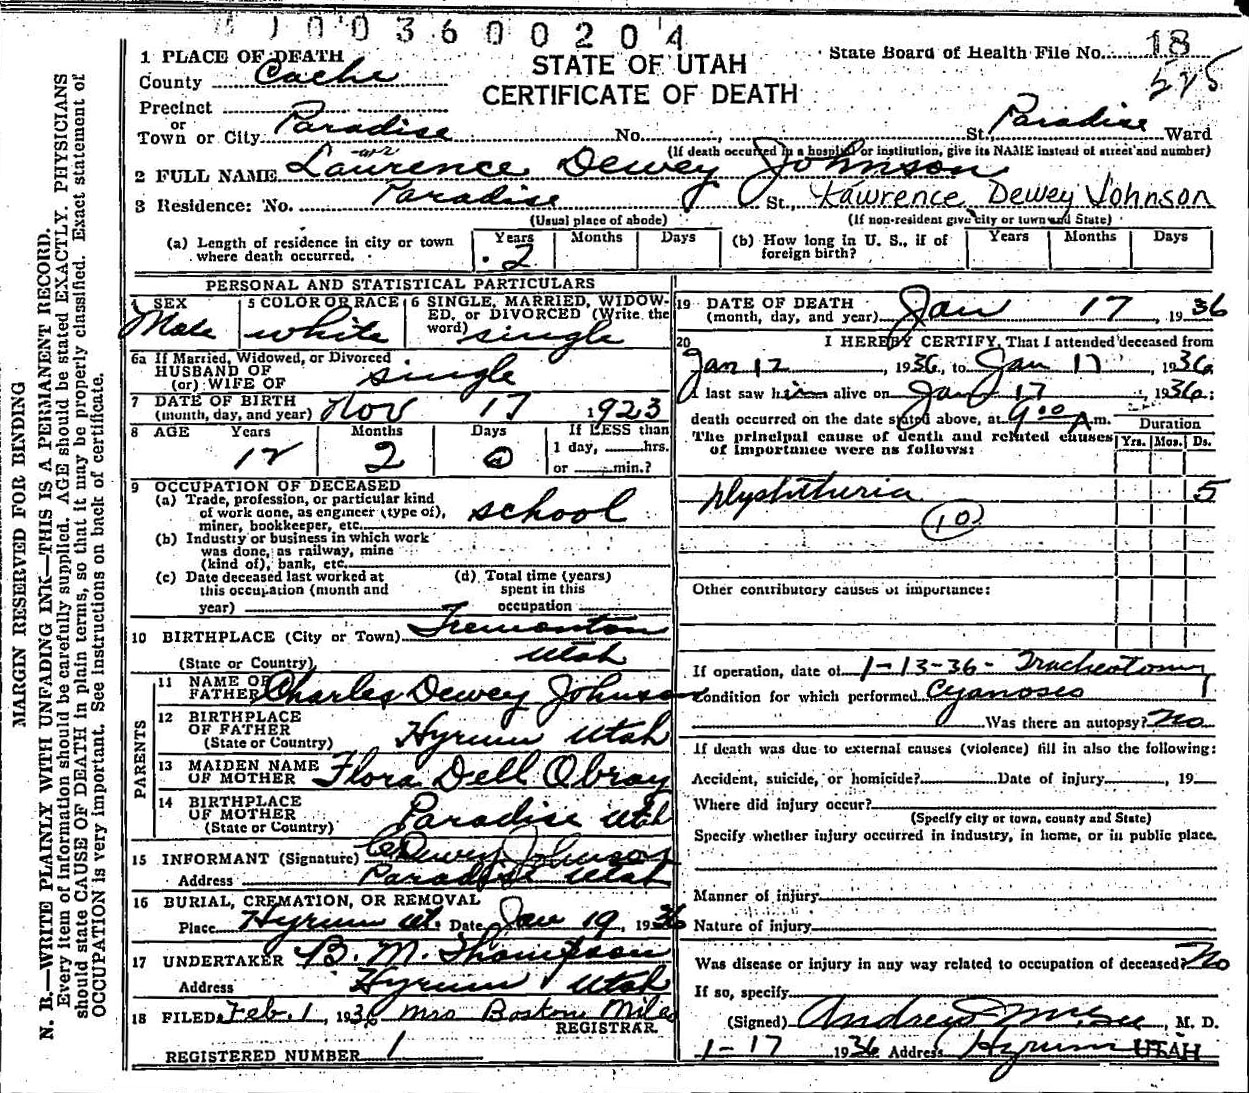 MARGIN RESERVED FOR BINDING
N. B.—WRITE PLAINLY WITH UNFADING INK—THIS IS A PERMANENT RECORD.
Every item of information should be carefully supplied. AGE should be stated EXACTLY. PHYSICIANS
should state CAUSE OF DEATH in plain terms, so that it may be properly classified. Exact statement of
OCCUPATION is very important. See instructions on back of certificate.
003600204
1 PLACE OF DEATH
County Cache
Precinct
or
Town or City Paradise No. , St. Paradise Ward
STATE OF UTAH
CERTIFICATE OF DEATH
State Board of Health File No. 18
525
(If death occurred in a hospital or institution, give its NAME instead of street and number)
2 FULL NAME Laurence Dewey Johnson
3 Residence: No. Paradise St., Lawrence Dewey Johnson
(Usual place of abode) (If non-resident give city or town and State)
(a) Length of residence in city or town where death occurred. Years 2 Months Days
(b) How long in U. S., if of foreign birth? Years Months Days
PERSONAL AND STATISTICAL PARTICULARS
4 SEX Male
5 COLOR OR RACE white
6 SINGLE, MARRIED, WIDOWED, OR DIVORCED (Write the word) single
6a If Married, Widowed, or Divorced
HUSBAND OF
(or) WIFE OF single
7 DATE OF BIRTH
(month, day, and year) Nov 17 1923
8 AGE Years 12 Months 2 Days 0 If LESS than
1 day, hrs.
or min.?
9 OCCUPATION OF DECEASED
(a) Trade, profession, or particular kind
of work done, as engineer (type of),
miner, bookkeeper, etc. school
(b) Industry or business in which work
was done, as railway, mine
(kind of), bank, etc.
(c) Date deceased last worked at
this occupation (month and
year)
(d) Total time (years)
spent in this
occupation
10 BIRTHPLACE (City or Town) Tremonton
(State or Country) Utah
PARENTS
11 NAME OF
FATHER Charles Dewey Johnson
12 BIRTHPLACE
OF FATHER
(State or Country) Hyrum Utah
13 MAIDEN NAME
OF MOTHER Flora Dell Obray
14 BIRTHPLACE
OF MOTHER
(State or Country) Paradise Utah
15 INFORMANT (Signature) C Dewey Johnson
Address Paradise Utah
16 BURIAL, CREMATION, OR REMOVAL
Place Hyrum Ut. Date Jan 19, 1936
17 UNDERTAKER B. M. Thompson
Address Hyrum Utah
18 FILED Feb. 1, 1936 Mrs Boston Miles
REGISTRAR
REGISTERED NUMBER 1
19 DATE OF DEATH
(month, day, and year) Jan 17, 1936
20 I HEREBY CERTIFY, That I attended deceased from
Jan 12, 1936, to Jan 17, 1936
I last saw him alive on Jan 17, 1936;
death occurred on the date stated above, at 9:00 A.m.
The principal cause of death and related causes
of importance were as follows:
Duration
Yrs. Mos. Ds.
Dyphtheria 5
10
Other contributory causes of importance:
If operation, date of 1-13-36- Tracheotomy
Condition for which performed Cyanosis
Was there an autopsy? No
If death was due to external causes (violence) fill in also the following:
Accident, suicide, or homicide? Date of injury , 19
Where did injury occur?
(Specify city or town, county and State)
Specify whether injury occurred in industry, in home, or in public place.
Manner of injury
Nature of injury
Was disease or injury in any way related to occupation of deceased? No
If so, specify
(Signed) Andrew McGee, M. D.
1-17 1936 Address Hyrum UTAH